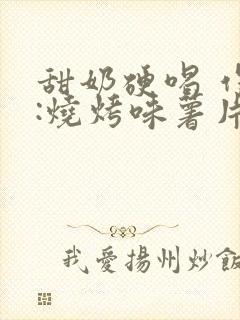 甜奶硬唱
:燒烤味薯片
我愛揚州炒飯